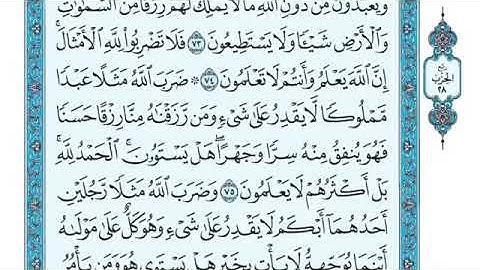 وَيَعۡبُدُونَ مِن دُونِ ٱللَّهِ مَا لَا يَمۡلِكُ لَهُمۡ رِزۡقٗا مِّنَ ٱلسَّمَٰوَٰتِ
وَٱلۡأَرۡضِ شَيۡـٔٗا وَلَا يَسۡتَطِيعُونَ ٧٣ فَلَا تَضۡرِبُواْ لِلَّهِ ٱلۡأَمۡثَالَۚ
إِنَّ ٱللَّهَ يَعۡلَمُ وَأَنتُمۡ لَا تَعۡلَمُونَ ٧٤ ۞ ضَرَبَ ٱللَّهُ مَثَلًا عَبۡدٗا
مَّمۡلُوكٗا لَّا يَقۡدِرُ عَلَىٰ شَيۡءٖ وَمَن رَّزَقۡنَٰهُ مِنَّا رِزۡقًا حَسَنٗا
فَهُوَ يُنفِقُ مِنۡهُ سِرّٗا وَجَهۡرًاۖ هَلۡ يَسۡتَوُۥنَۚ ٱلۡحَمۡدُ لِلَّهِۚ
بَلۡ أَكۡثَرُهُمۡ لَا يَعۡلَمُونَ ٧٥ وَضَرَبَ ٱللَّهُ مَثَلٗا رَّجُلَيۡنِ
أَحَدُهُمَآ أَبۡكَمُ لَا يَقۡدِرُ عَلَىٰ شَيۡءٖ وَهُوَ كَلٌّ عَلَىٰ مَوۡلَىٰهُ
أَيۡنَمَا يُوَجِّههُّ لَا يَأۡتِ بِخَيۡرٍ هَلۡ يَسۡتَوِي هُوَ وَمَن يَأۡمُرُ
ربع
الحزب
٢٨